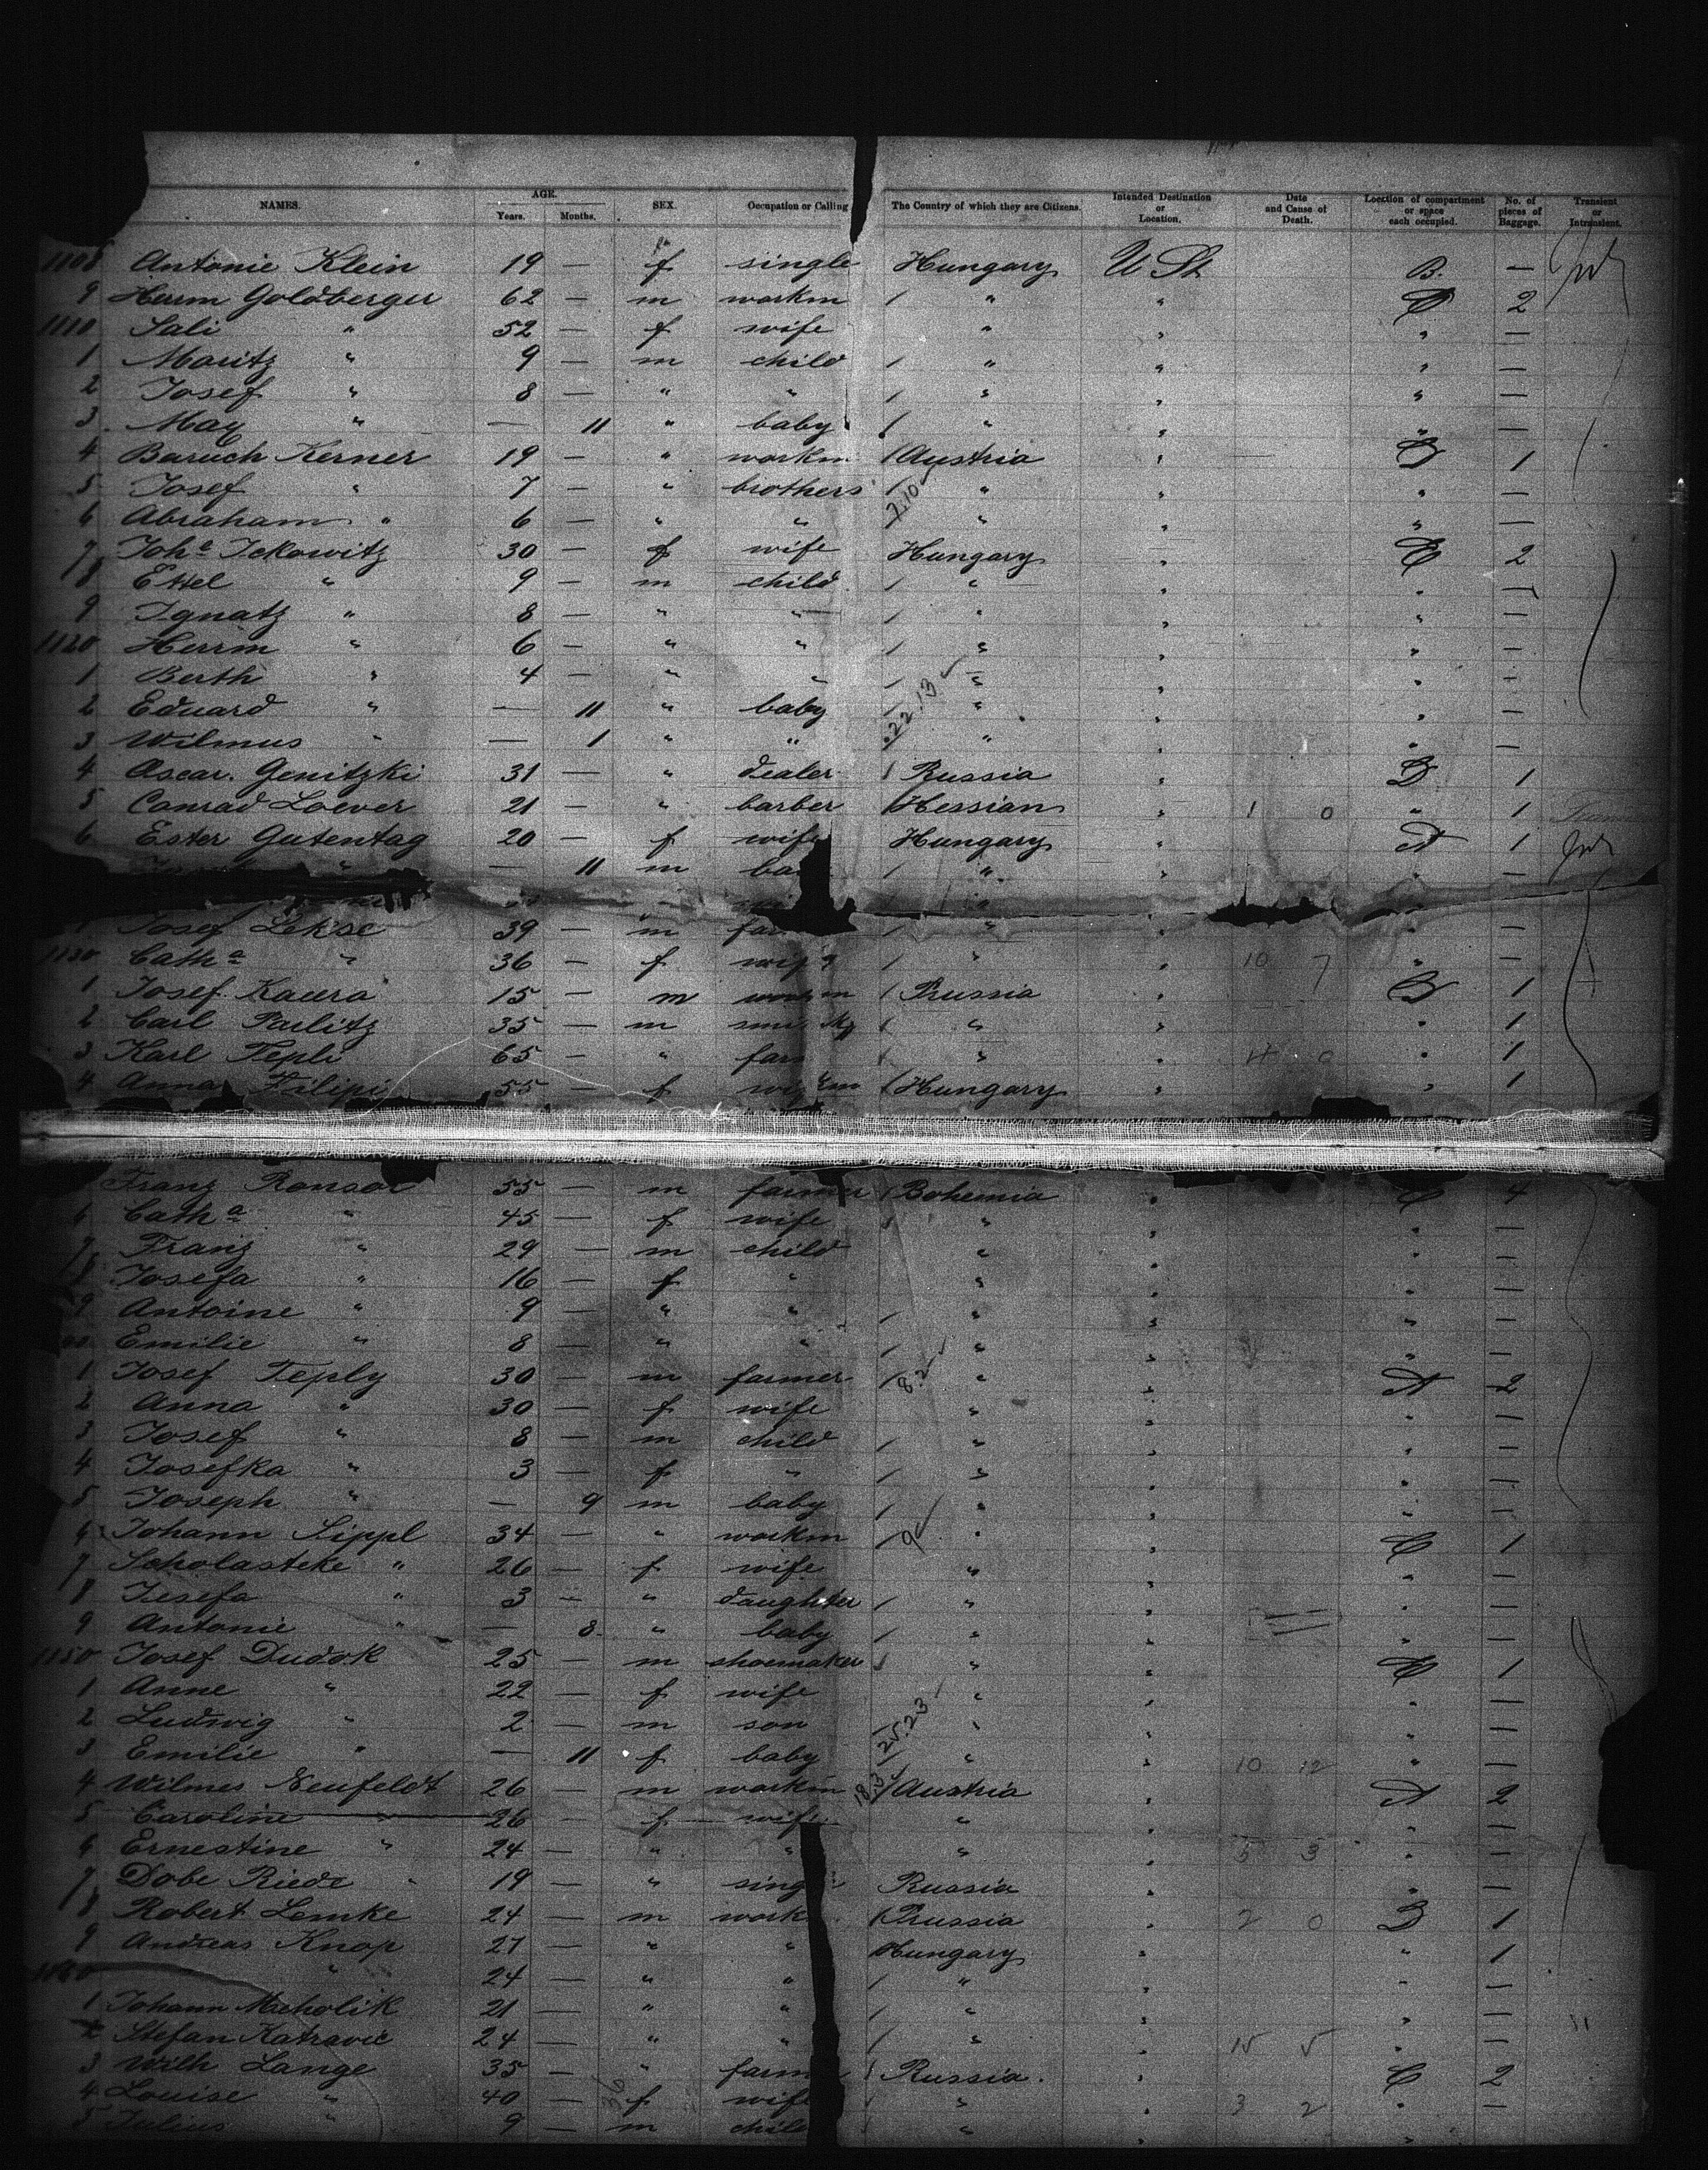 NAMES. AGE. Years. Months. SEX. Occupation or Calling The Country of which they are Citizens. Intended Destination or Location. Date and Cause of Death. Location of compartment or space each occupied. No. of pieces of Baggage. Transient or Intransient.
1108 Antonie Klein 19 — f single Hungary U St B. —
9 Herrm Goldberger 62 — m workm / " " 2
1110 Sali " 52 — f wife " " " —
1 Moritz " 9 — m child / " " " —
2 Josef " 8 — " " / " " " —
3 Max " — 11 " baby / " " " —
4 Baruch Kerner 19 — " workm / Austria " B 1
5 Josef " 7 — " brothers / " " " —
6 Abraham " 6 — " " 7.10 " " " —
7 Joha Ickowitz 30 — f wife Hungary " C 2
8 Ettel " 9 — m child / " " " —
9 Ignatz " 8 — " " / " " " —
1120 Herrm " 6 — " " / " " " —
1 Berth " 4 — " " / " " " —
2 Eduard " — 11 " baby / " " " —
3 Wilmus " — 1 " " 22.13 " " " —
4 Oscar. Genitzki 31 — " dealer / Russia " B 1
5 Conrad Loever 21 — " barber / Hessian " 1 0 " 1
6 Ester Gutentag 20 — f wife Hungary " A 1
" — 11 m ba " " " —
Josef Lekse 39 — m far / " " " —
1130 Catha " 36 — f wife / " " 10 7 " —
1 Josef Kacera 15 — m workm / Prussia " B 1
2 Carl Parlitz 35 — m / " " " 1
3 Karl Tepli 65 — " far / " " " 1
4 Anna Filipi 55 — f / Hungary " " 1
Franz Ronsor 55 — m farmer / Bohemia " C 4
6 Catha " 45 — f wife / " " " —
7 Franz " 29 — m child " " " —
8 Josefa " 16 — f " " " " —
9 Antoine " 9 — " " / " " " —
40 Emilie " 8 — " " / " " " —
1 Josef Teply 30 — m farmer / 8.2 " " A 2
2 Anna " 30 — f wife " " " —
3 Josef " 8 — m child / " " " —
4 Josefka " 3 — f " / " " " —
5 Joseph " — 9 m baby / " " " —
6 Johann Lippl 34 — " workm / 9 " " C 1
7 Scholasteke " 26 — f wife " " " —
8 Jesefa " 3 — " daughter / " " " —
9 Antonie " — 8 " baby / " " " —
1150 Josef Dudok 25 — m shoemaker / " " C 1
1 Anne " 22 — f wife " " " —
2 Ludwig " 2 — m son / " " " —
3 Emilie " — 11 f baby / 25.23 " " 10 12 " —
4 Wilmes Neufeldt 26 — m workm / Austria " A 2
5 Caroline " 26 f wife " " " —
6 Ernestine " 24 — " " " " 5 3 " —
7 Dobe Riede " 19 — " sing Russia " " —
8 Robert Lemke 24 — m work / Prussia " 2 0 B 1
9 Andreas Knop 27 — " " Hungary " " 1
1160 " 24 — " " / " " " —
1 Johann Macholik 21 — " " / " " " —
2 Stefan Katravic 24 — " " / " " 15 5 " —
3 Wilh Lange 35 — " farm / Russia. " C 2
4 Louise " 40 — f wife " " 3 2 " —
5 Julius " 9 — m chil " " "